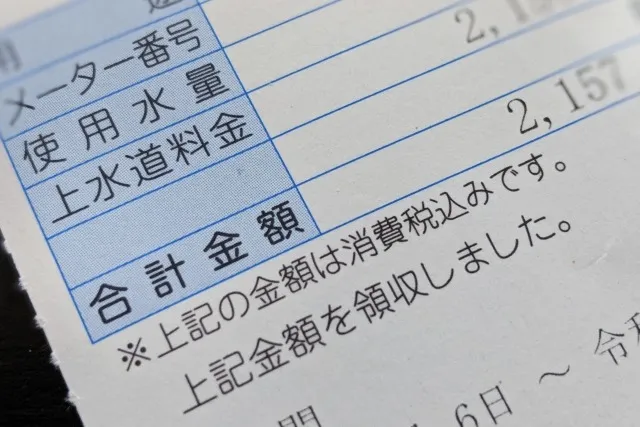 メーター番号
使用水量
上水道料金 2,1
合計金額 2,157
※上記の金額は消費税込みです。
上記金額を領収しました。
6日 ～ 令和